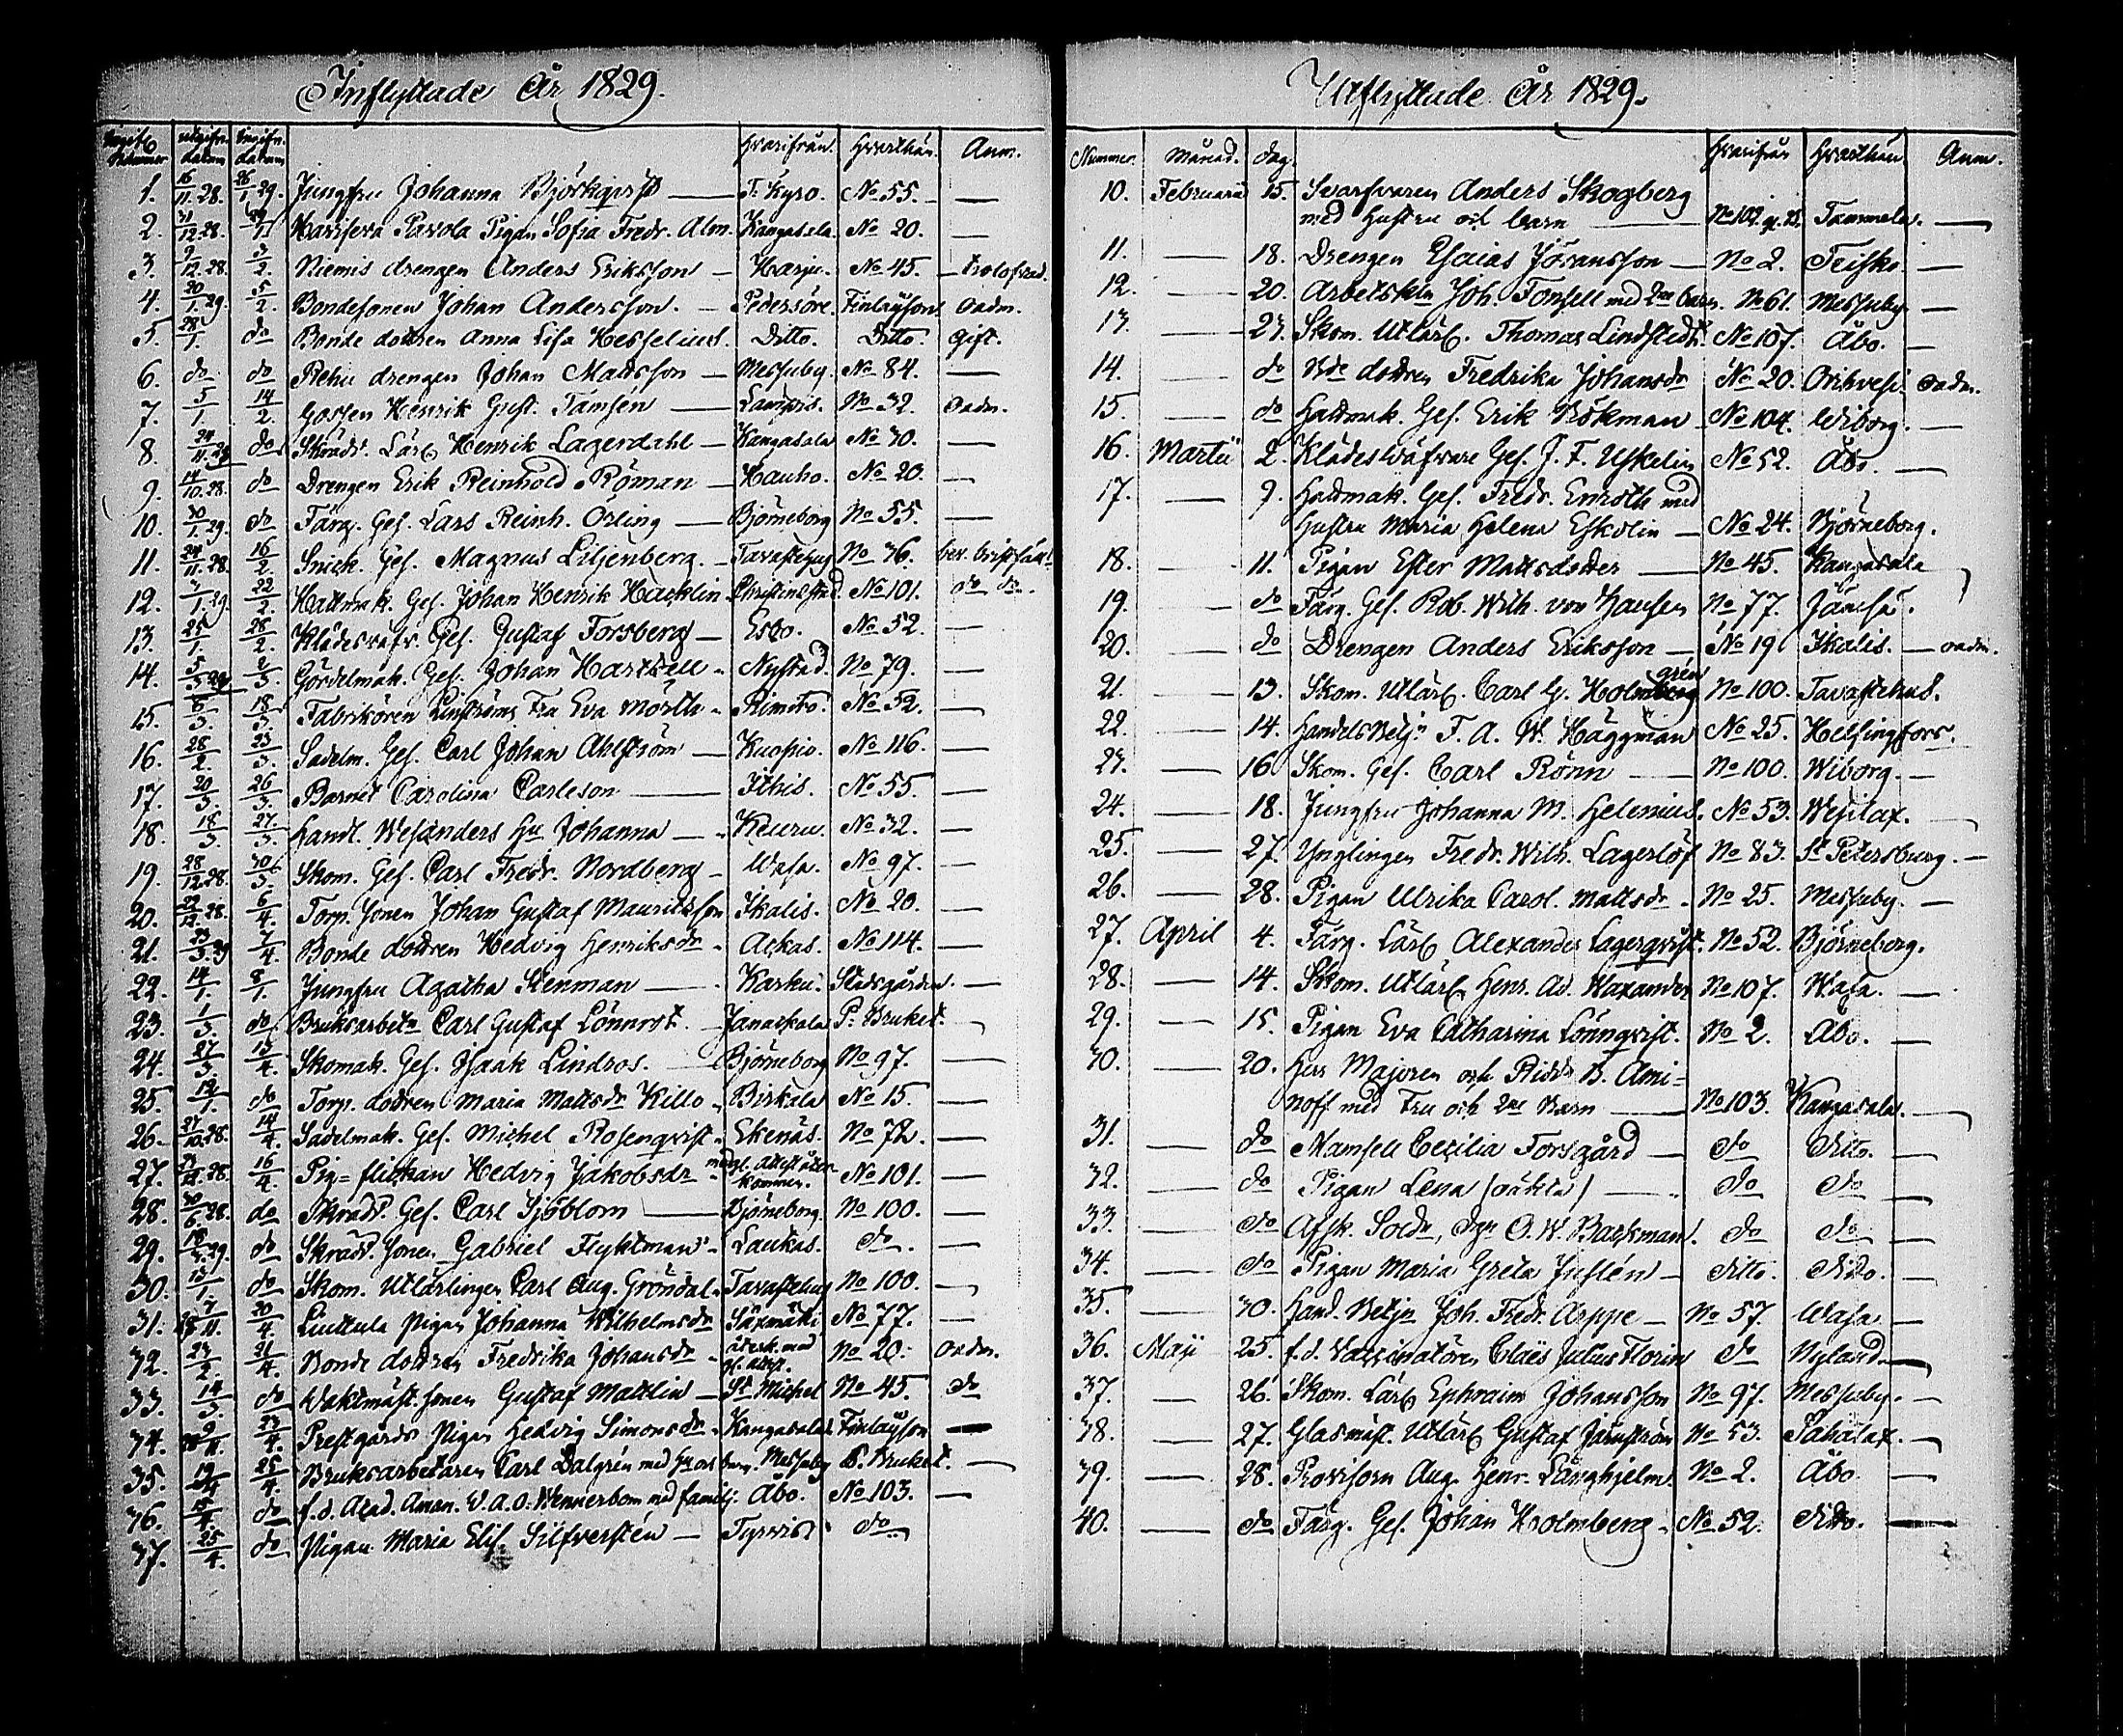 Inflyttade År 1829.
Numer datum datum Hvarifrån. Hvarthän. Anm.
1. 16/11.28. 26/1.29. Jungfru Johanna Björkqvist — T. Kyro. No 55. —
2. 31/12.28. Harjfera Pavola Pigan Sofia Fredr. Alm. Kangasala. No 20. —
3. 9/12.28. 3/2. Niemis drengen Anders Eriksson — Harju. No 45. —
4. 20/1.29. 5/2. Bondesonen Johan Andersson. — Pedersöre. Finlayson. oadm.
5. 28/1. do Bonde dottren Anna Lisa Hesselius. Ditto. Ditto. gift.
6. do do Rehu drengen Johan Mattsson — Messuby. No 84. —
7. 5/1. 14/2. Gossen Henrik Gust. Tamsén — Lampis. No 32. oadm.
8. 24/11.29 do Skrädd. Lärl. Henrik Lagerdahl — Kangasala No 30. —
9. 14/10.28. do Drengen Erik Reinhold Röman — Hauho. No 20. —
10. 30/1.29. do Färg. Ges. Lars Reinh. Örling — Björneborg No 55. —
11. 24/11.28. 16/2. Snick. Ges. Magnus Liljenberg. — Tavastehus No 36.
12. 7/1.29. 22/2. Hattmak. Ges. Johan Henrik Hacklin Christinestad. No 101. do do.
13. 25/1. 28/2. Klädesväfv. Ges. Gustaf Forsberg — Esbo. No 52. —
14. 5/3.29 2/3. Gördelmak. Ges. Johan Hartzell — Nystad. No 79. —
15. 6/3. 18/3. Fabrikören Fru Eva Mörth — Rimito. No 52. —
16. 28/2. 23/3. Sadelm. Ges. Carl Johan Ahlström — Kuopio. No 116. —
17. 20/3. 26/3. Barnet Carolina Carleson — Ithis. No 55. —
18. 18/3. 27/3. Handl. Wesanders Hu Johanna — Keuru. No 32. —
19. 28/12.28. 30/3. Skom. Ges. Carl Fredr. Nordberg — Wasa. No 97. —
20. 22/12.28. 6/4. Torp. sonen Johan Gustaf Mauritsson Ikalis. No 20. —
21. 23/3.29 7/4. Bonde dottren Hedvig Henriksdr — Ackas. No 114. —
22. 14/1. 8/1. Jungfru Agatha Stenman — Karku. Stadsgården. —
23. 1/3. do Bruksarbetn Carl Gustaf Lönnrot. — Janakkala P. Bruket. —
24. 27/3. 13/4. Skomak. Ges. Isaak Lindros. — Björneborg No 97. —
25. 12/1. do Torp. dottren Maria Mattsdr Killo — Birkala No 15. —
26. 27/10.28. 14/4. Sadelmak. Ges. Michel Rosenqvist — Ekenäs. No 72. —
27. 23/12.28. 16/4. Pig=flickan Hedvig Jakobsdr — med gl. attest åter kommen. No 101. —
28. 30/6.28. do Skrädd. Ges. Carl Sjöblom — Björneborg. No 100. —
29. do Skrädd. sonen Gabriel Flyktman — Laukas. do. —
30. 13/1. do Skom. Utlärlingen Carl Aug. Gröndal — Tavastehus No 100. —
31. 7/11. 20/4. Liuttula Pigan Johanna Wilhelmsdr Säxmäki No 77. —
32. 23/2. 21/4. Bonde dottren Fredrika Johansdr — återk. med gl. attest. No 20. oadm.
33. 14/3. do Waktmäst. sonen Gustaf Mattlin — St Michel No 45. do
34. 9/11. 23/4. Prestgårds Pigan Hedvig Simonsdr — Kangasala Finlayson —
35. 19/4 25/4. Bruksarbetaren Carl Dalgrén med Hu och barn. Messuby P. Bruket. —
36. 15/4. do f.d. Acad. Aman. W.A.O. Wennerbom med familj. Åbo. No 103. —
37. 25/4. do Pigan Maria Elis. Silfverstén — Tyrvis do
Utflyttade År 1829.
Nummer. Månad. dag. Hvarifrån Hvarthän Anm.
10. Februarii 15. Svarfvaren Anders Skogberg
med Hustru och barn — No 102. Tammela. —
11. — 18. Drengen Esaias Jöransson — No 2. Teisko. —
12. — 20. Arbetskln Joh. Fonsell med 2ne barn. No 61. Messuby. —
13. — 23. Skom. Utlärl. Thomas Lindstedt. No 107. Åbo. —
14. — do Bde dottren Fredrika Johansdr No 20. Orihvesi. oadm.
15. — do Hattmak. Ges. Erik Bökman No 104. Wiborg. —
16. Martii 2. Klädeswäfvare Ges. J. F. Uskelin No 52. Åbo. —
17. — 9. Hattmak. Ges. Fredr. Enroth med
Hustru Maria Helena Eskolin — No 24. Björneborg.
18. — 11. Pigan Ester Mattsdotter — No 45. Kangasala
19. — do Färg. Ges. Rob. Wilh. von Hausen No 77. Jämsä.
20. — do Drengen Anders Eriksson — No 19 Ikalis. — oadm.
21. — 13. Skom. Utlärl. Carl G. Holmberg grén No 100. Tavastehus.
22. — 14. Handels Betjn F. A. W. Häggman No 25. Helsingfors.
23. — 16 Skom. Ges. Carl Rönn — No 100. Wiborg. —
24. — 18. Jungfru Johanna M. Helenius. No 53. Wesilax. —
25. — 27. Ynglingen Fredr. Wilh. Lagerlöf No 83. St Petersburg. —
26. — 28. Pigan Ulrika Carol. Mattsdr — No 25. Messuby. —
27. April 4. Färg. Lärl. Alexander Lagerqvist. No 52. Björneborg.
28. — 14. Skom. Utlärl. Henr. Ad. Waxander No 107. Wasa. —
29. — 15. Pigan Eva Catharina Lönnqvist. No 2. Åbo. —
30. — 20. Herr Majoren och Ridd. B. Ami=
noff med Fru och 2ne Barn — No 103. Kangasala. —
31. — do Mamsell Cecilia Forsgård — do Ditto. —
32. — do Pigan Lena (oäkta) — do do —
33. — do Afsk. Soldn, O. W. Backman. do do —
34. — do Pigan Maria Greta Juslén — Ditto. Ditto. —
35. — 30. Hand. Betjn Joh. Fredr. Arppe — No 57. Wasa —
36. Maji 25. f.d. Vaccinatören Claës Julius Florin do Nyland. —
37. — 26. Skom. Lärl. Ephraim Johansson No 97. Messuby. —
38. — 27. Glasmäst. Utlärl. Gustaf Järnström No 53. Sahalax. —
39. — 28. Provisorn Aug. Henr. Långhjelm. No 2. Åbo —
40. — do Färg. Ges. Johan Holmberg. No 52. Ditto. —